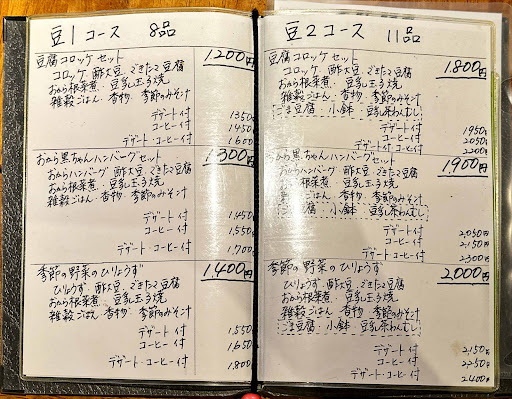 豆1コース 8品
豆腐コロッケセット 1,200円
コロッケ 酢大豆 できたて豆腐
おから根菜煮 豆乳玉子焼
雑穀ごはん 香物 季節のみそ汁
デザート付 1350
コーヒー付 1450
デザート・コーヒー付 1600
おから黒ちゃんハンバーグセット 1,300円
おからハンバーグ 酢大豆 できたて豆腐
おから根菜煮 豆乳玉子焼
雑穀ごはん 香物 季節のみそ汁
デザート付 1,450
コーヒー付 1,550
デザート・コーヒー付 1,700
季節の野菜のひりょうず 1,400円
ひりょうず 酢大豆 できたて豆腐
おから根菜煮 豆乳玉子焼
雑穀ごはん 香物 季節のみそ汁
デザート付 1,550
コーヒー付 1,650
デザート・コーヒー付 1,800
豆2コース 11品
豆腐コロッケセット 1,800円
コロッケ 酢大豆 できたて豆腐
おから根菜煮 豆乳玉子焼
雑穀ごはん 香物 季節のみそ汁
ごま豆腐 小鉢 豆乳茶わんむし
デザート付 1950
コーヒー付 2050
デザート コーヒー付 2200
おから黒ちゃんハンバーグセット 1,900円
おからハンバーグ 酢大豆 できたて豆腐
おから根菜煮 豆乳玉子焼
雑穀ごはん 香物 季節のみそ汁
ごま豆腐 小鉢 豆乳茶わんむし
デザート付 2,050円
コーヒー付 2,150円
デザート・コーヒー付 2,300円
季節の野菜のひりょうず 2,000円
ひりょうず 酢大豆 できたて豆腐
おから根菜煮 豆乳玉子焼
雑穀ごはん 香物 季節のみそ汁
ごま豆腐 小鉢 豆乳茶わんむし
デザート付 2,150円
コーヒー付 2,250円
デザート・コーヒー付 2,400円